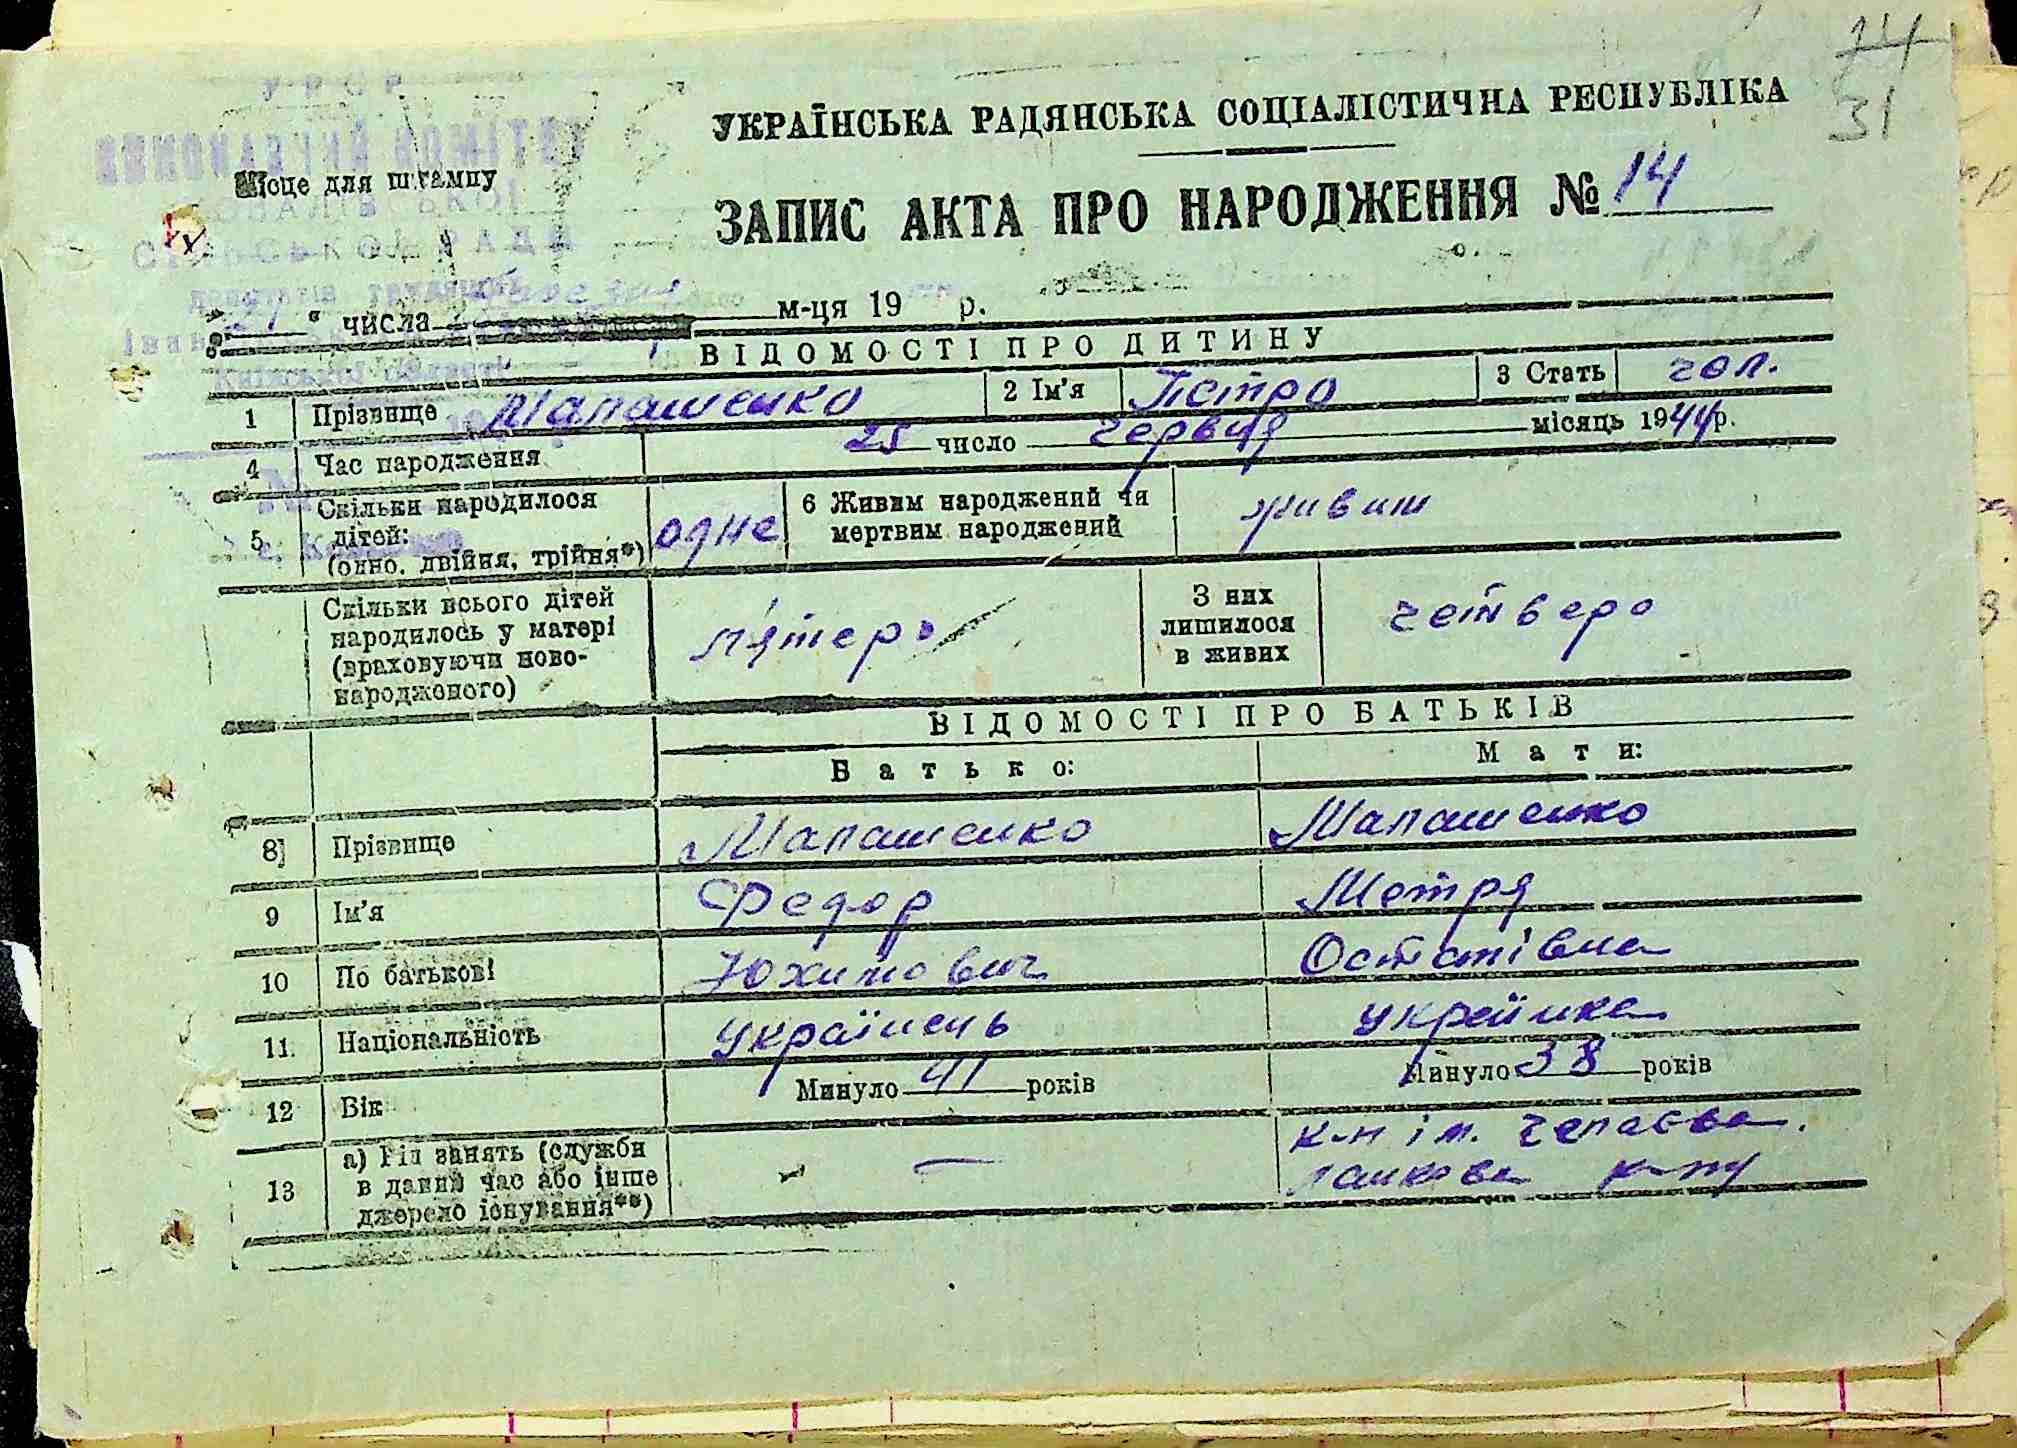 14
31
УРСР
УКРАЇНСЬКА РАДЯНСЬКА СОЦІАЛІСТИЧНА РЕСПУБЛІКА
Місце для штампу
ЗАПИС АКТА ПРО НАРОДЖЕННЯ № 14
СІЛЬСЬКОЇ РАДИ
депутатів трудящих
" числа м-ця 19 р.
ВІДОМОСТІ ПРО ДИТИНУ
Київської області
1 Прізвище Малашенко 2 Ім'я Петро 3 Стать чол.
4 Час народження 25 число червня місяць 1944 р.
5 Скільки народилося дітей: (одно, двійня, трійня*) одне 6 Живим народжений чи мертвим народжений живим
Скільки всього дітей народилось у матері (враховуючи новонародженого) п'ятеро З них лишилося в живих четверо
ВІДОМОСТІ ПРО БАТЬКІВ
Батько: Мати:
8) Прізвище Малашенко Малашенко
9 Ім'я Федор Мотря
10 По батькові Юхимович Остапівна
11. Національність українець українка
12 Вік Минуло 41 років Минуло 38 років
13 а) Рід занять (служби в даний час або інше джерело існування**) — к-п ім. Чепаєва.
ланкова